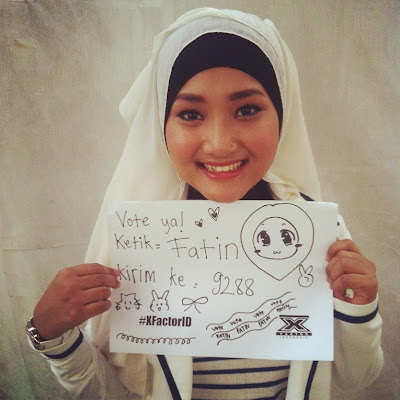 Vote ya!
Ketik = Fatin
kirim ke : 9288
#XFactorID
vote vote vote vote
FATIN FATIN FATIN FATIN
X
FACTOR
INDONESIA